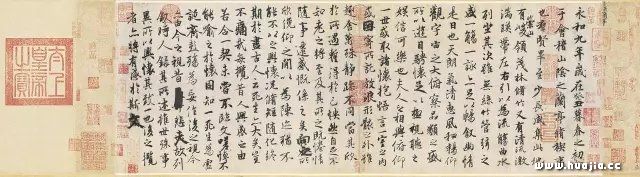 永和九年歲在癸丑暮春之初會
于會稽山陰之蘭亭脩稧事
也群賢畢至少長咸集此地
有崇山峻領茂林脩竹又有清流激
湍暎帶左右引以為流觴曲水
列坐其次雖無絲竹管弦之
盛一觴一詠亦足以暢叙幽情
是日也天朗氣清惠風和暢仰
觀宇宙之大俯察品類之盛
所以遊目騁懷足以極視聽之
娛信可樂也夫人之相與俯仰
一世或取諸懷抱悟言一室之內
或因寄所託放浪形骸之外雖
趣舍萬殊靜躁不同當其欣
於所遇蹔得於己怏然自足不
知老之將至及其所之既惓情
隨事遷感慨係之矣向之所
欣俛仰之間以為陳迹猶不
能不以之興懷況脩短隨化終
期於盡古人云死生亦大矣豈
不痛哉每攬昔人興感之由
若合一契未嘗不臨文嗟悼不
能喻之於懷固知一死生為虛
誕齊彭殤為妄作後之視今
亦由今之視昔悲夫故列
叙時人錄其所述雖世殊事
異所以興懷其致一也後之攬
者亦將有感於斯文
太上皇帝之寶
www.huajia.cc